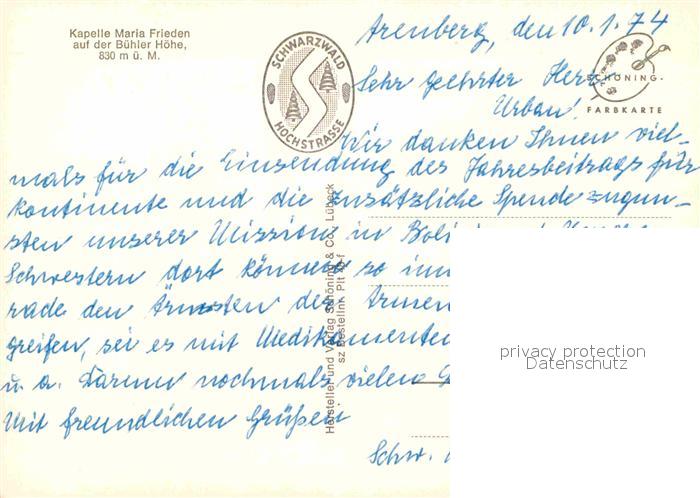 Kapelle Maria Frieden
auf der Bühler Höhe,
830 m ü. M.
SCHWARZWALD
HOCHSTRASSE
SCHÖNING-
FARBKARTE
Arenberg, den 10.1.74
Sehr geehrter Herr
Urban!
Wir danken Ihnen viel-
mals für die Einsendung des Jahresbeitrags für
Kontinente und die zusätzliche Spende zugun-
sten unserer Mission in Boli
Schwestern dort können so
rade den Ärmsten der Armen
greifen, sei es mit Medikamenten
u. a. Darum nochmals vielen
Mit freundlichen Grüßen
Schw.
Hersteller und Verlag Schöning & Co., Lübeck
sz Bestellnr. Plt
privacy protection
Datenschutz